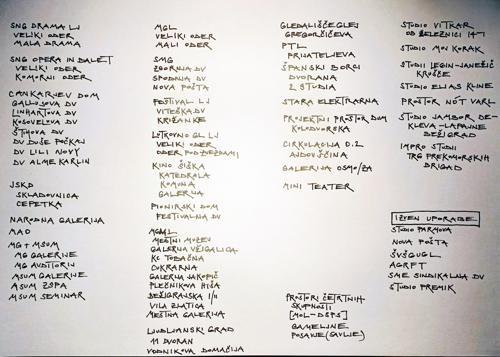 SNG DRAMA LJ
VELIKI ODER
MALA DRAMA
SNG OPERA IN BALET
VELIKI ODER
KOMORNI ODER
CANKARJEV DOM
GALLUSOVA DV
LINHARTOVA DV
KOSOVELOVA DV
ŠTIHOVA DV
DV DUŠE POČKAJ
DV LILI NOVY
DV ALME KARLIN
JSKD
SKLADOVNICA
CEPETKA
NARODNA GALERIJA
MAO
MG + MSUM
MG GALERIJE
MG AVDITORIJ
MSUM GALERIJE
MSUM ŽSPA
MSUM SEMINAR
MGL
VELIKI ODER
MALI ODER
SMG
ZGORNJA DV
SPODNJA DV
NOVA POŠTA
FESTIVAL LJ
VITEŠKA DV
KRIŽANKE
LUTKOVNO GL LJ
VELIKI ODER
ODER POD ZVEZDAMI
KINO ŠIŠKA
KATEDRALA
KOMUNA
GALERIJA
PIONIRSKI DOM
FESTIVALNA DV
MGML
MESTNI MUZEJ
GALERIJA VŽIGALICA
KC TOBAČNA
CUKRARNA
GALERIJA JAKOPIČ
PLEČNIKOVA HIŠA
BEŽIGRAJSKA I/II
VILA ZLATICA
MESTNA GALERIJA
LJUBLJANSKI GRAD
11 DVORAN
VODNIKOVA DOMAČIJA
GLEDALIŠČE GLEJ
GREGORČIČEVA
PTL
PRIJATELJEVA
ŠPANSKI BORCI
DVORANA
2 STUDIA
STARA ELEKTRARNA
PROJEKTNI PROSTOR DUM
KOLODVORSKA
CIRKULACIJA 2.2
GALERIJA OSMO/ZA
MINI TEATER
PROSTORI ČETRTNIH
SKUPNOSTI
[MOL-DSPS]
GAMELJNE
POSAVJE (SAVLJE)
STUDIO VITKAR
OB ŽELEZNICI 14
STUDIO MOJ KORAK
STUDIJ LEGIN-JANEŽIČ
KRUŠČE
STUDIO ELIAS KLINE
PROSTOR NOT VARL
STUDIO JAMBOR DE-
KLEVA-LAPAJNE
BEŽIGRAD
IMPRO STUDIJ
TRG PREKOMORSKIH
BRIGAD
IZVEN UPORABE
STUDIO PARMOVA
NOVA POŠTA
ŠVŠGUGL
AGRFT
SME SINDIKALNA DV
STUDIO PREMIK